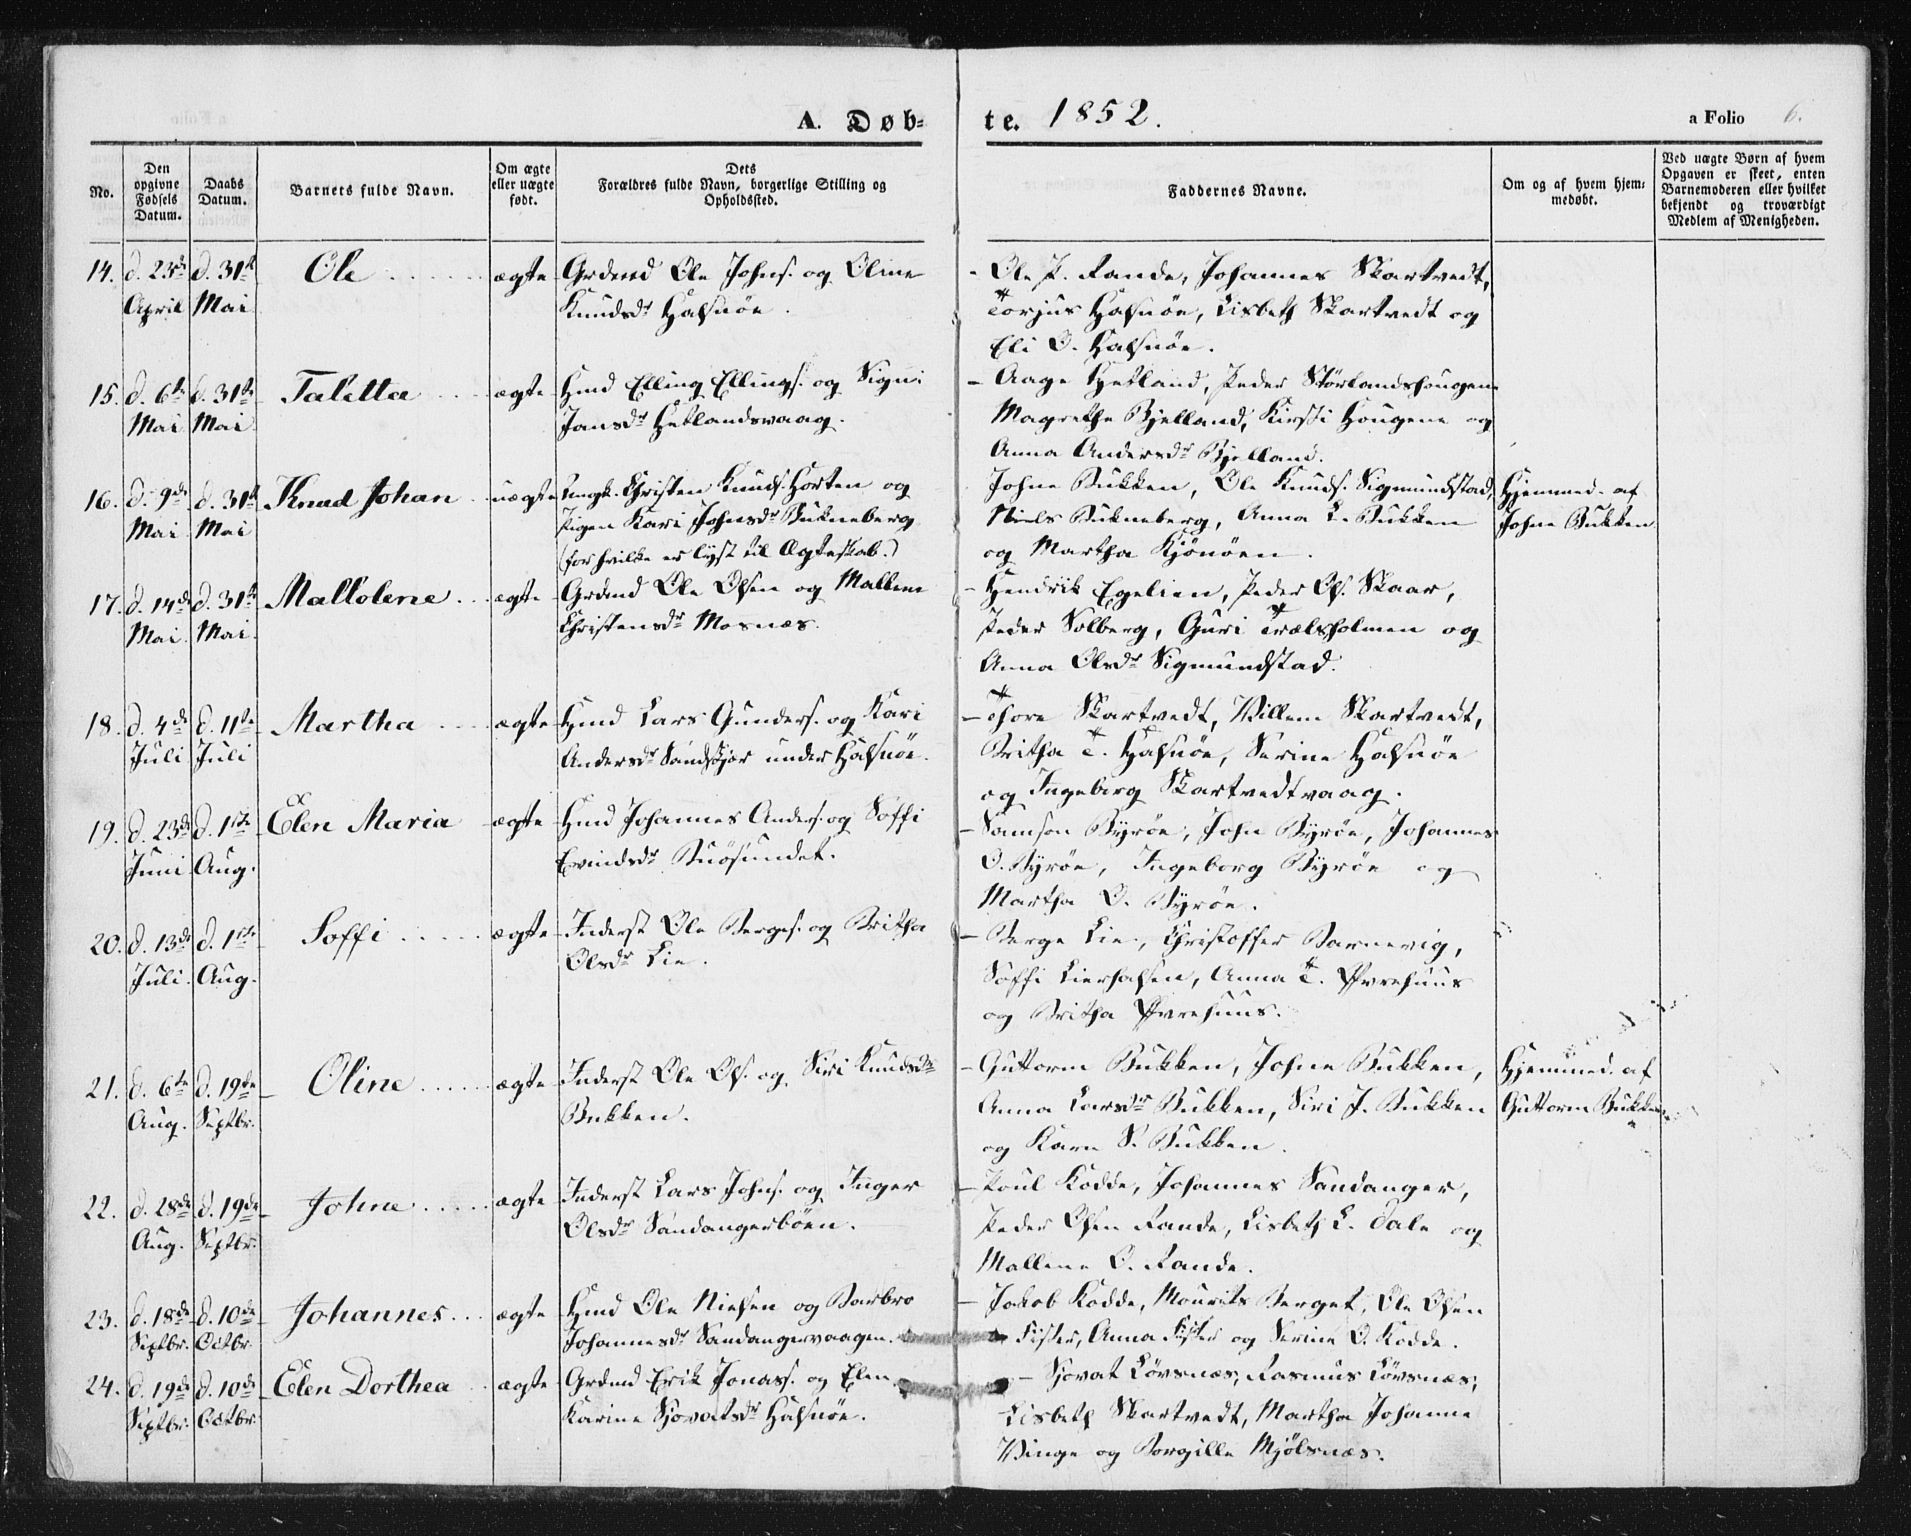 A. Døb-te. 1852. a Folio 6.
No.
Den opgivne Fødsels Datum.
Daabs Datum.
Barnets fulde Navn.
Om ægte eller uægte født.
Dets Forældres fulde Navn, borgerlige Stilling og Opholdssted.
Faddernes Navne.
Om og af hvem hjem-medøbt.
Ved uægte Børn af hvem Opgaven er skeet, enten Barnemoderen eller hvilket bekjendt og troværdigt Medlem af Menigheden.
14. d. 23de April d. 31te Mai Ole ægte Grdmd Ole Johns. og Oline
Knudsdr Halsnöe.
- Ole P. Rande, Johannes Skartvedt,
Torjus Halsnöe, Lisbeth Skartvedt og
Eli O. Halsnöe.
15. d. 6te Mai d. 31te Mai Taletta ægte Hmd Elling Ellings. og Signi
Jansdr Hetlandsvaag.
- Aage Hetland, Peder Störlandshougen
Magrethe Bjelland, Kirsti Hougene og
Anna Andersdr Bjelland.
16. d. 9de Mai d. 31te Mai Knud Johan uægte Ungk. Christen Knuds. Horten og
Pigen Kari Johnsdr Bukneberg
(for hvilke er lyst til Ægteskab.)
Johne Bukken, Ole Knuds. Sigmundstad,
Niels Bukneberg, Anna L. Bukken
og Martha Kjönöen.
Hjemmed. af
Johne Bukken
17. d. 14de Mai d. 31te Mai Mallolene ægte Grdmd Ole Olsen og Mallene
Christensdr Mosnæs.
- Hendrik Egelien, Peder Ols. Skaar,
Peder Solberg, Guri Trælsholmen og
Anna Olsdr Sigmundstad.
18. d. 4de Juli d. 11te Juli Martha ægte Hmd Lars Gunders. og Kari
Andersdr Sandskjær under Halsnöe.
- Thore Skartvedt, Willem Skartvedt,
Britha T. Halsnöe, Serine Halsnöe
og Ingeborg Skartvedtvaag.
19. d. 23de Juni d. 1ste Aug. Elen Maria ægte Hmd Johannes Anders. og Soffi
Evindsdr Buösundet.
- Samson Byröe, John Byröe, Johannes
O. Byröe, Ingeborg Byröe og
Martha O. Byröe.
20. d. 13de Juli. d. 1ste Aug. Soffi ægte Inderst Ole Berges. og Britha
Olsdr Lie.
- Berge Lie, Christoffer Barnevig,
Soffi Lierhalsen, Anna T.
og Britha
21. d. 6te Aug. d. 19de Septbr. Oline ægte Inderst Ole Ols. og Siri Knudsdr
Bukken.
- Guttorm Bukken, Johne Bukken,
Anna Larsdr Bukken, Siri J. Bukken
og Karn S. Bukken.
Hjemmed. af
Guttorm Bukken
22. d. 28de Aug. d. 19de Septbr. Johne ægte Inderst Lars Johns. og Inger
Olsdr Sandangerböen.
- Poul Kodde, Johannes Sandanger,
Peder Olsen Rande, Lisbeth L. Dale og
Mallene O. Rande.
23. d. 18de Septbr. d. 10de Octbr. Johannes ægte Hmd Ole Nielsen og Barbro
Johannesdr Sandangervaagen.
- Jakob Kodde, Mourits Berget, Ole Olsen
Fister, Anna Fister og Serine O. Kodde.
24. d. 19de Septbr. d. 10de Octbr. Elen Dorthea ægte Grdmd Erik Jonass. og Elen
Karine Sjovatsdr Halsnöe.
- Sjovat Lövsnæs, Rasmus Lövsnæs,
Lisbeth Skartvedt, Martha Johanne
Winge og Borgille Mjölsnæs.